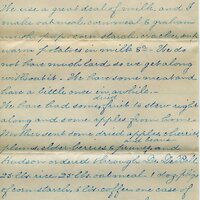 We use a great deal of milk, and I
make oatmeal, cornmeal & graham
mush, pap, corn starch, crackers and
warm potatoes in milk &c. We do
not have much lard so we get along
without it. We have some meat and
have a little once in awhile.
We have had some fruit to stew right
along and some apples from home.
Mother sent some dried apples, cherries
plums, elder berries & prunes, and
Hudson ordered through
25 lbs rice 25 lbs oatmeal 1 doz pkgs
of corn starch, 6 lbs coffee one case of